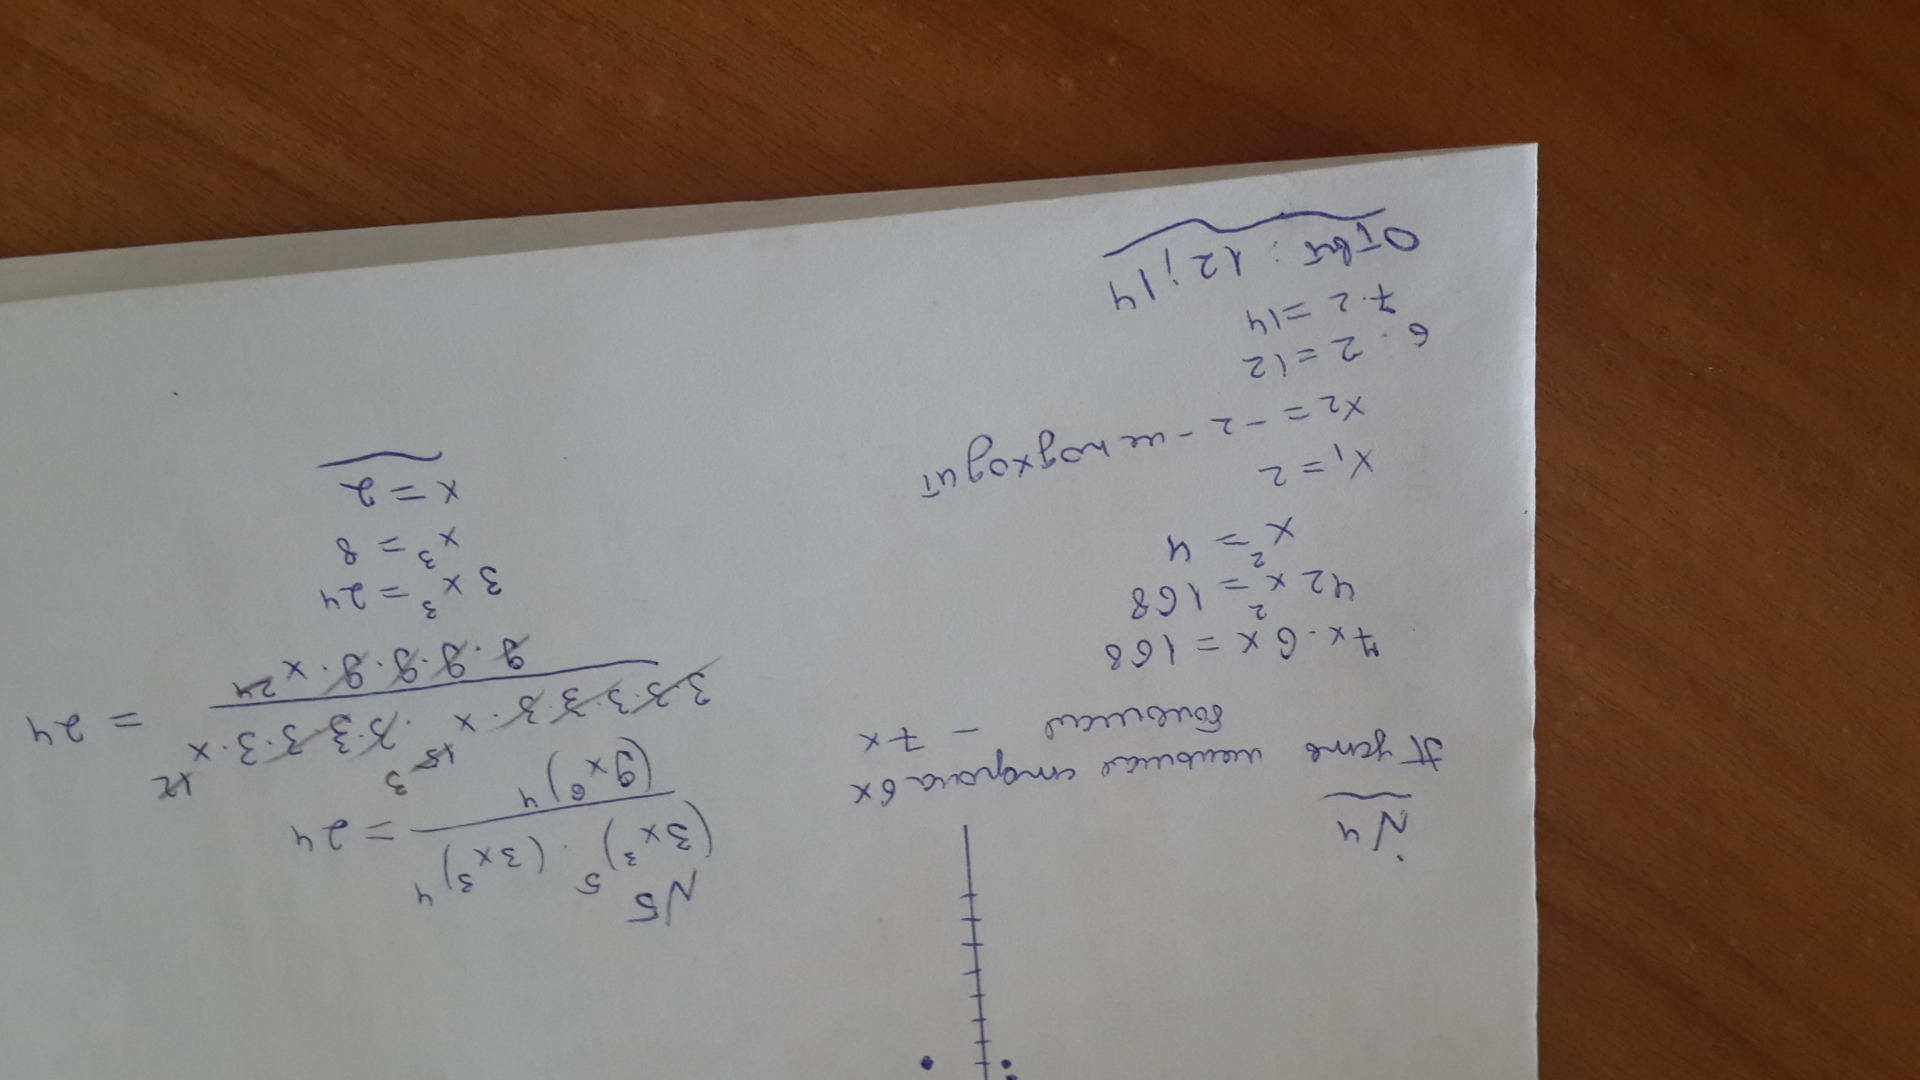 №4
Пусть меньшая сторона 6x
большая - 7x
7x · 6x = 168
42x² = 168
x² = 4
x₁ = 2
x₂ = -2 - не подходит
6 · 2 = 12
7 · 2 = 14
Ответ: 12; 14
№5
(3x³)⁵ · (3x³)⁴ / (9x⁶)⁴ = 24
3·3·3·3·3·x¹⁵³ · 3·3·3·3·x¹² / 9·9·9·9·x²⁴ = 24
3x³ = 24
x³ = 8
x = 2